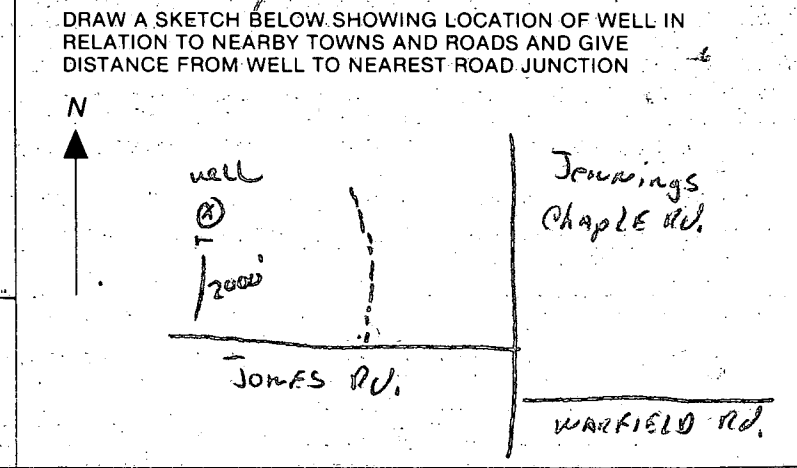 DRAW A SKETCH BELOW SHOWING LOCATION OF WELL IN
RELATION TO NEARBY TOWNS AND ROADS AND GIVE
DISTANCE FROM WELL TO NEAREST ROAD JUNCTION
N
well
X
2000'
Jennings
Chaple Rd.
JONES Rd.
WARFIELD Rd.